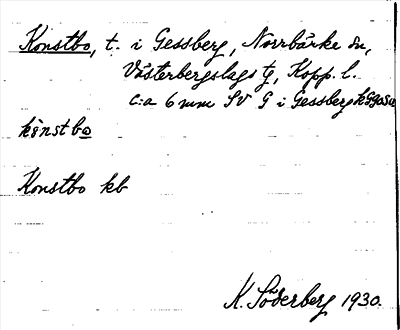 Konstbo, t. i Gessberg, Norrbärke sn,
Västerbergslags tg, Kopp. l.
c:a 6 mm SV G i Gessberg
kònstbo
Konstbo kb
K. Söderberg 1930.